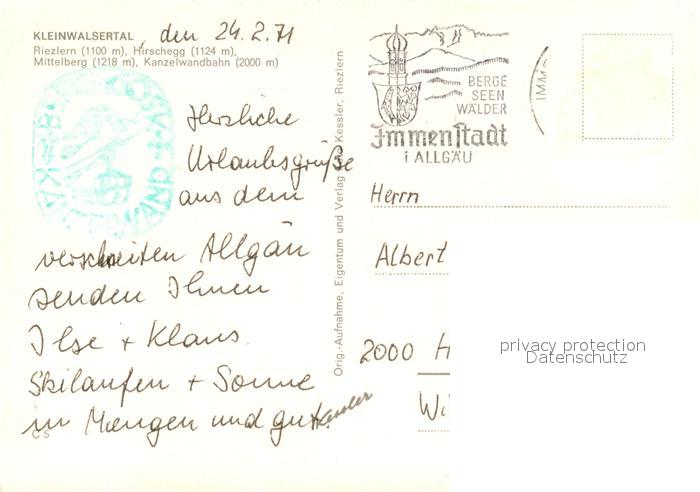 KLEINWALSERTAL, den 24.2.71
Riezlern (1100 m), Hirschegg (1124 m),
Mittelberg (1218 m), Kanzelwandbahn (2000 m)
Herzliche
Urlaubsgrüße
aus dem
verschneiten Allgäu
senden Ihnen
Ilse + Klaus.
Skilaufen + Sonne
in Mengen und gut.
CS
Orig.-Aufnahme, Eigentum und Verlag Kessler, Riezlern
BERGE
SEEN
WÄLDER
Immenstadt
i ALLGÄU
IMM
Herrn
Albert
2000 H
Wi
privacy protection
Datenschutz